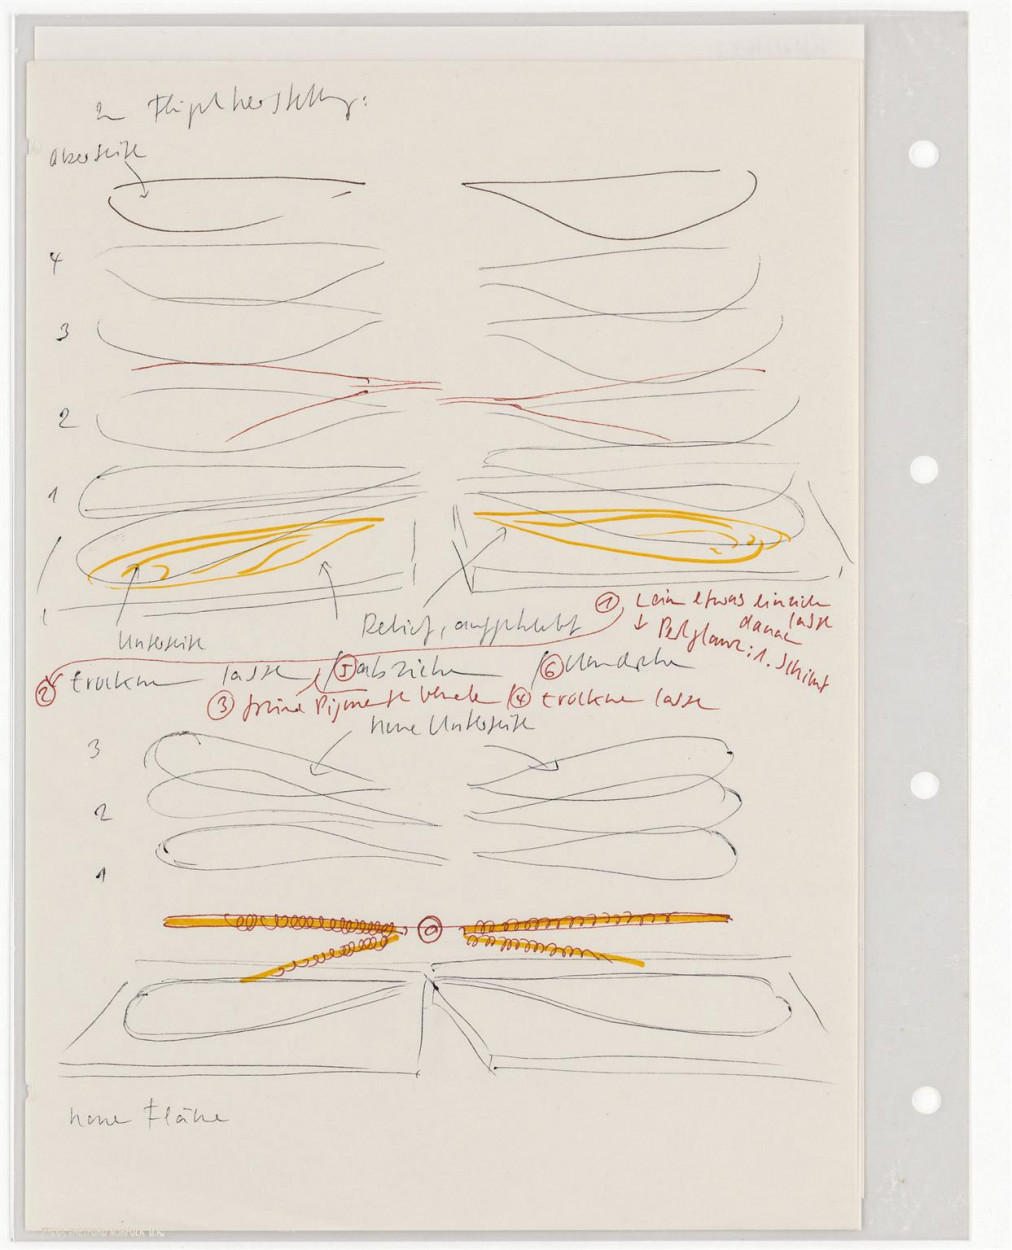 Zu Flügelherstellung:
Oberseite
4
3
2
1
① Leim etwas einziehen
lassen
↓ danach
Perlglanz: 1. Schicht
Relief, aufgeklebt
Unterseite
② trocknen lassen / ⑤ abziehen / ⑥ wenden
③ feine Pigmente / ④ trocknen lassen
neue Unterseite
3
2
1
neue Fläche